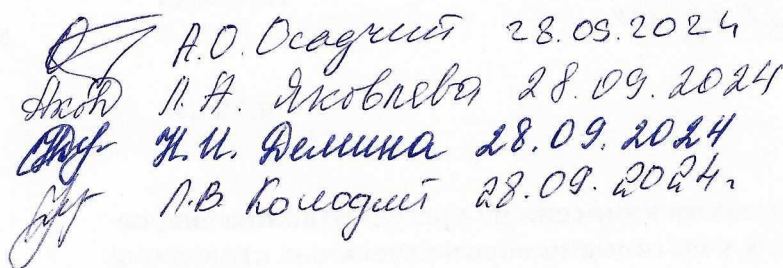 А.О. Осадчий 28.09.2024
Л.А. Яковлева 28.09.2024
Н.И. Демина 28.09.2024
Л.В. Колодий 28.09.2024.